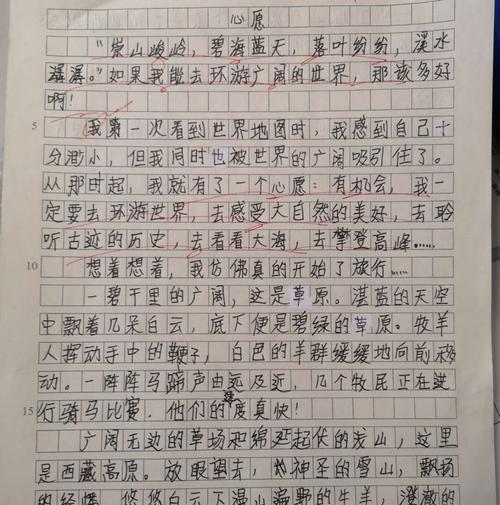 心愿
“崇山峻岭，碧海蓝天，落叶纷纷，溪水
潺潺。”如果我能去环游广阔的世界，那该多好
啊！
5 我第一次看到世界地图时，我感到自己十
分渺小，但我同时也被世界的广阔吸引住了。
从那时起，我就有了一个心愿：有机会，我一
定要去环游世界，去感受大自然的美好，去聆
听古迹的历史，去看看大海，去攀登高峰……
10 想着想着，我仿佛真的开始了旅行……
一碧千里的广阔，这是草原。湛蓝的天空
中飘着几朵白云，底下便是碧绿的草原。牧羊
人挥动手中的鞭子，白色的羊群缓缓地向前移
动。一阵阵马蹄声由远及近，几个牧民正在进
15 行骑马比赛，他们的速度真快！
广阔无边的草场和绵延起伏的浅山，这里
是西藏高原。放眼望去，神圣的雪山，飘扬
的经幡，悠悠白云下漫山遍野的牛羊，澄澈的